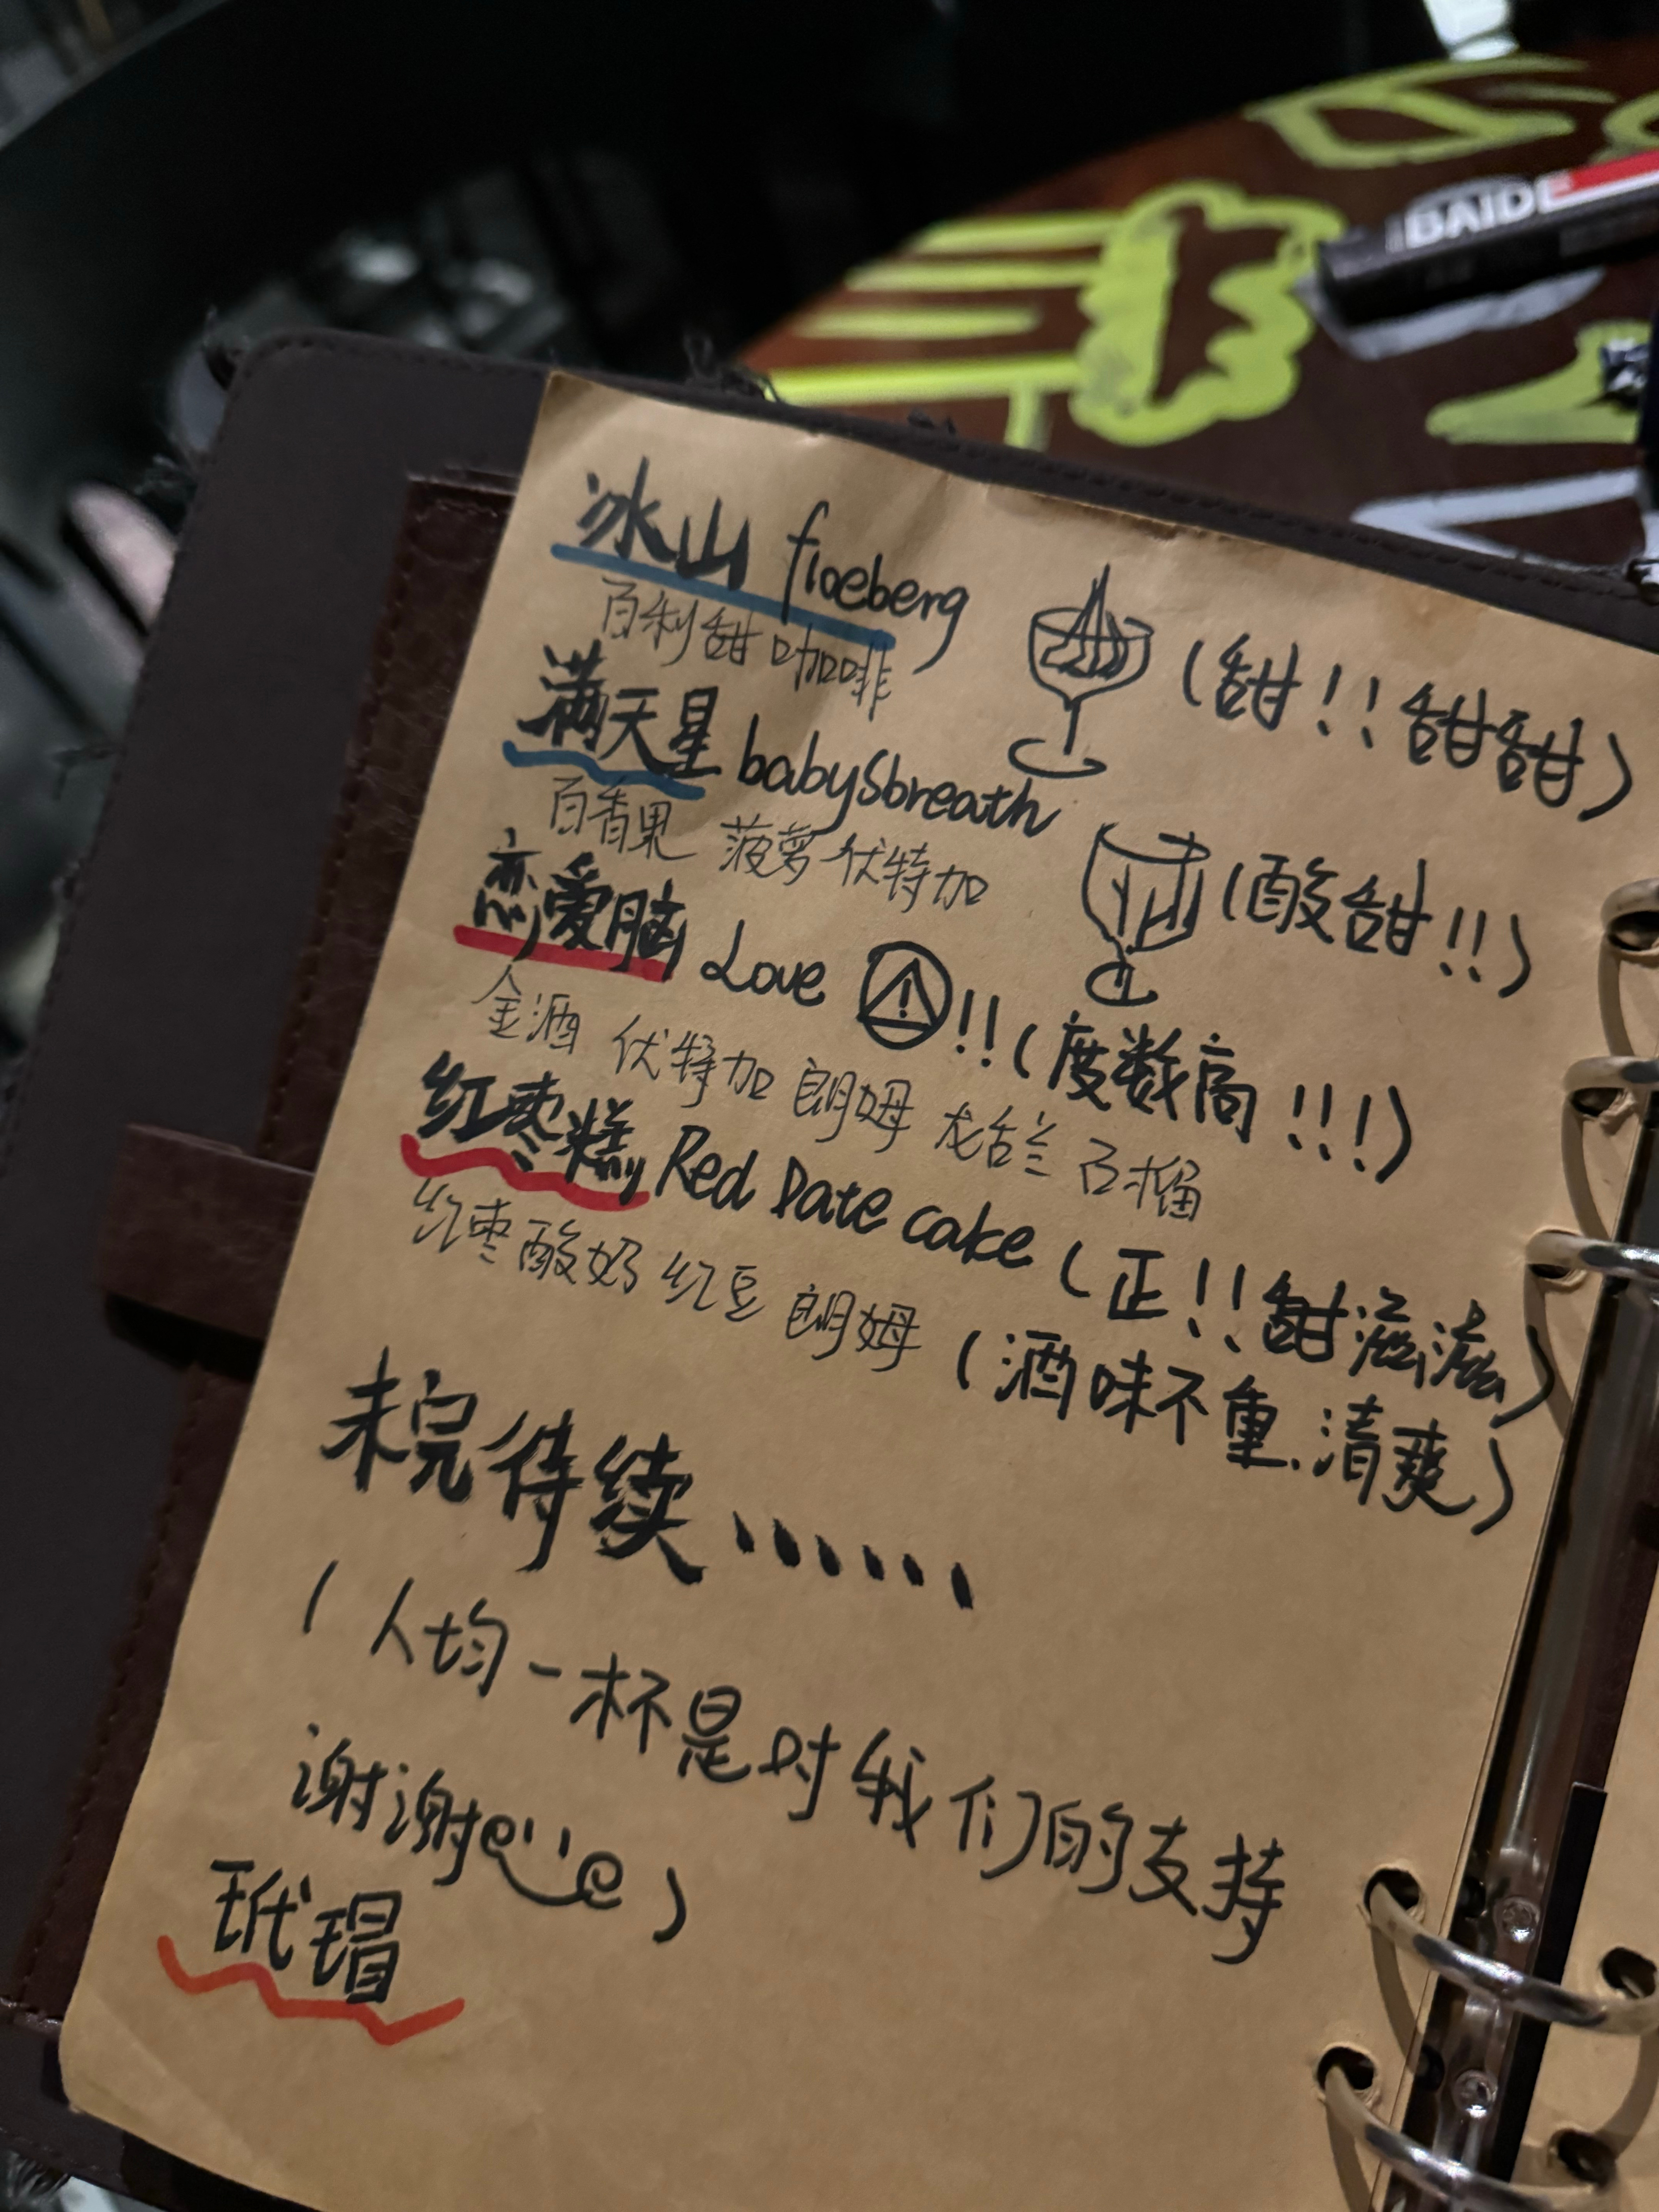 BAIDE
冰山 fioeberg (甜！！甜甜)
百利甜 咖啡
满天星 babysbreath (酸甜！！)
百香果 菠萝 伏特加
恋爱脑 Love !!! (度数高！！！)
金酒 伏特加 朗姆 龙舌兰 石榴
红枣糕 Red Date cake (正！！甜滋滋)
红枣 酸奶 红豆 朗姆 (酒味不重、清爽)
未完待续......
(人均一杯是对我们的支持
谢谢)
玳瑁